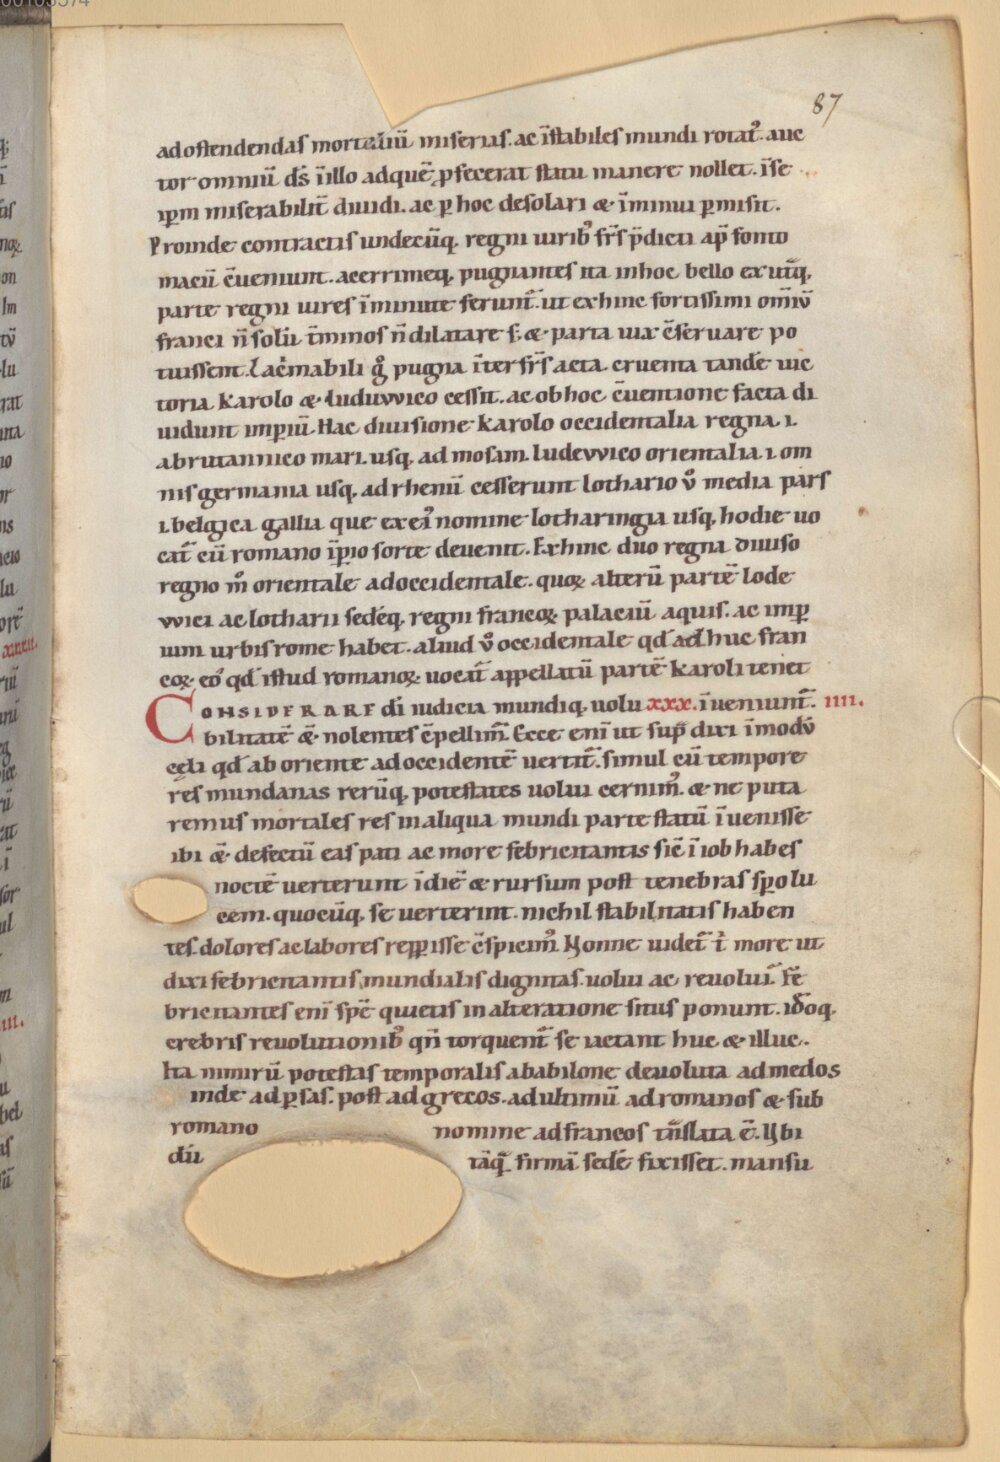 87
ad ostendendas mortaliū miserias. ac īstabiles mundi rotat᷒. auc
tor omniū ds̄ ī illo ad quē ꝓfecerat statu manere nollet. īse
ip̄m miserabilit̄ diuidi. ac ꝑ hoc desolari & īminui ꝑmisit.
Proinde contractis undecūq; regni uirib᷒ frs̄ p̄dicti ap̄ fonto
niacū c̄ueniunt. acerrimeq; pugnantes ita in hoc bello ex utq̄;
parte regni uires īminute ferunt᷒. ut exhinc fortissimi om̄iū
franci n̄ solū t̄minos n̄ dilatare s; & parta uix c̄seruare po
tuissent. Lac͛mabili g̊ pugna īter frs̄ acta. cruenta tandē uic
toria Karolo & luduvvico cessit. ac ob hoc c̄uentione facta di
uidunt imꝑiū. Hac diuisione Karolo occidentalia regna. i.
a brutannico mari usq; ad mosam. ludevvico orientalia. i. om
nis germania usq; ad rhenū cesserunt lothario ů media pars
.i. belgica gallia que ex ei᷒ nomine lotharingia usq; hodie uo
cat᷒ cū romano īꝑio sorte deuenit. Exhinc duo regna diuiso
regno in̄ orientale ad occidentale. quoꝝ alterū partē lode
vvici ac lotharii sedēq; regni francoꝝ palaciū aquis. ac imꝑ
ium urbis rome habet. aliud ů occidentale qd̄ adhuc fran
coꝝ. eo᷒ qd̄ istud romanoꝝ uocat᷒ appellatū partē Karoli tenet
CONSIDERARE di iudicia mundiq; uolu xxx. īueniunt᷒. IIII.
bilitatē & nolentes c̄pellim᷒. Ecce enī ut sup̄ dixi īmodū
celi qd̄ ab oriente ad occidentē uertit᷒. simul cū tempore
res mundanas rerūq; potestates uolui cernim᷒. & ne puta
remus mortales res in aliqua mundi parte statū īuenisse
ibi & defectū eas pati ac more febricitantis sic̄ ī iob habes
noctē uerterunt ī diē & rursum post tenebras spo lu
cem. quocūq; se uerterint. nichil stabilitatis haben
tes. dolores ac labores repꝑisse c̄spicim᷒. Nonne uidet᷒ t͛ more ut
dixi febricitantis mundialis dignitas. uolui ac reuolui᷒. Fe
bricitantes enī spē quietis in alteratione situs ponunt. idoq;
crebris reuolutionib᷒ qn̄ torquent᷒ se iactant huc & illuc.
Ita nimirū potestas temporalis a babilone deuoluta ad medos
inde ad ꝑsas. post ad grecos. ad ultimū ad romanos & sub
romano nomine ad francos tn̄slata ē. Vbi
dū tāq̄; firmā sedē fixisset. mansu